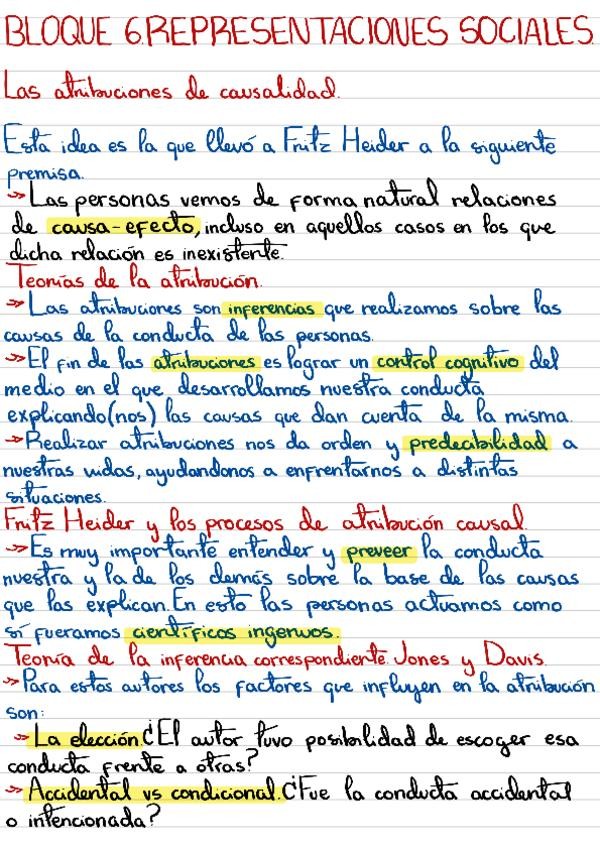 BLOQUE 6.REPRESENTACIONES SOCIALES.
Las atribuciones de causalidad.
Esta idea es la que llevó a Fritz Heider a la siguiente
premisa.
->Las personas vemos de forma natural relaciones
de causa-efecto, incluso en aquellos casos en los que
dicha relación es inexistente.
Teorías de la atribución.
->Las atribuciones son inferencias que realizamos sobre las
causas de la conducta de las personas.
->El fin de las atribuciones es lograr un control cognitivo del
medio en el que desarrollamos nuestra conducta
explicando(nos) las causas que dan cuenta de la misma.
->Realizar atribuciones nos da orden y predecibilidad a
nuestras vidas, ayudandonos a enfrentarnos a distintas
situaciones.
Fritz Heider y los procesos de atribución causal.
->Es muy importante entender y preveer la conducta
nuestra y la de los demás sobre la base de las causas
que las explican. En esto las personas actuamos como
si fueramos científicos ingenuos.
Teoría de la inferencia correspondiente. Jones y Davis.
->Para estos autores los factores que influyen en la atribución
son:
->La elección.¿El autor tuvo posibilidad de escoger esa
conducta frente a otras?
->Accidental vs condicional.¿Fue la conducta accidental
o intencionada?